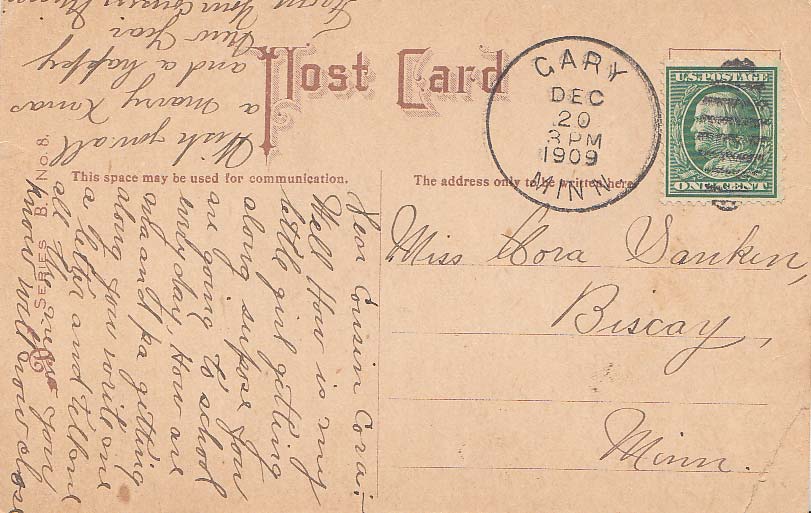 Post Card
GARY
DEC
20
3 PM
1909
MINN.
U.S. POSTAGE
ONE CENT
This space may be used for communication.
The address only to be written here
SERIES B. No. 8.
Miss Cora Yanken,
Biscay,
Minn.
Dear Cousin Cora:-
Well How is my
little girl getting
along supose you
are going to school
every day, How are
ma and pa getting
along you write me
a letter and tell me
all the news you
know will now close
Wish you all
a marry Xmas
and a happy
New Year
From Your Cousin